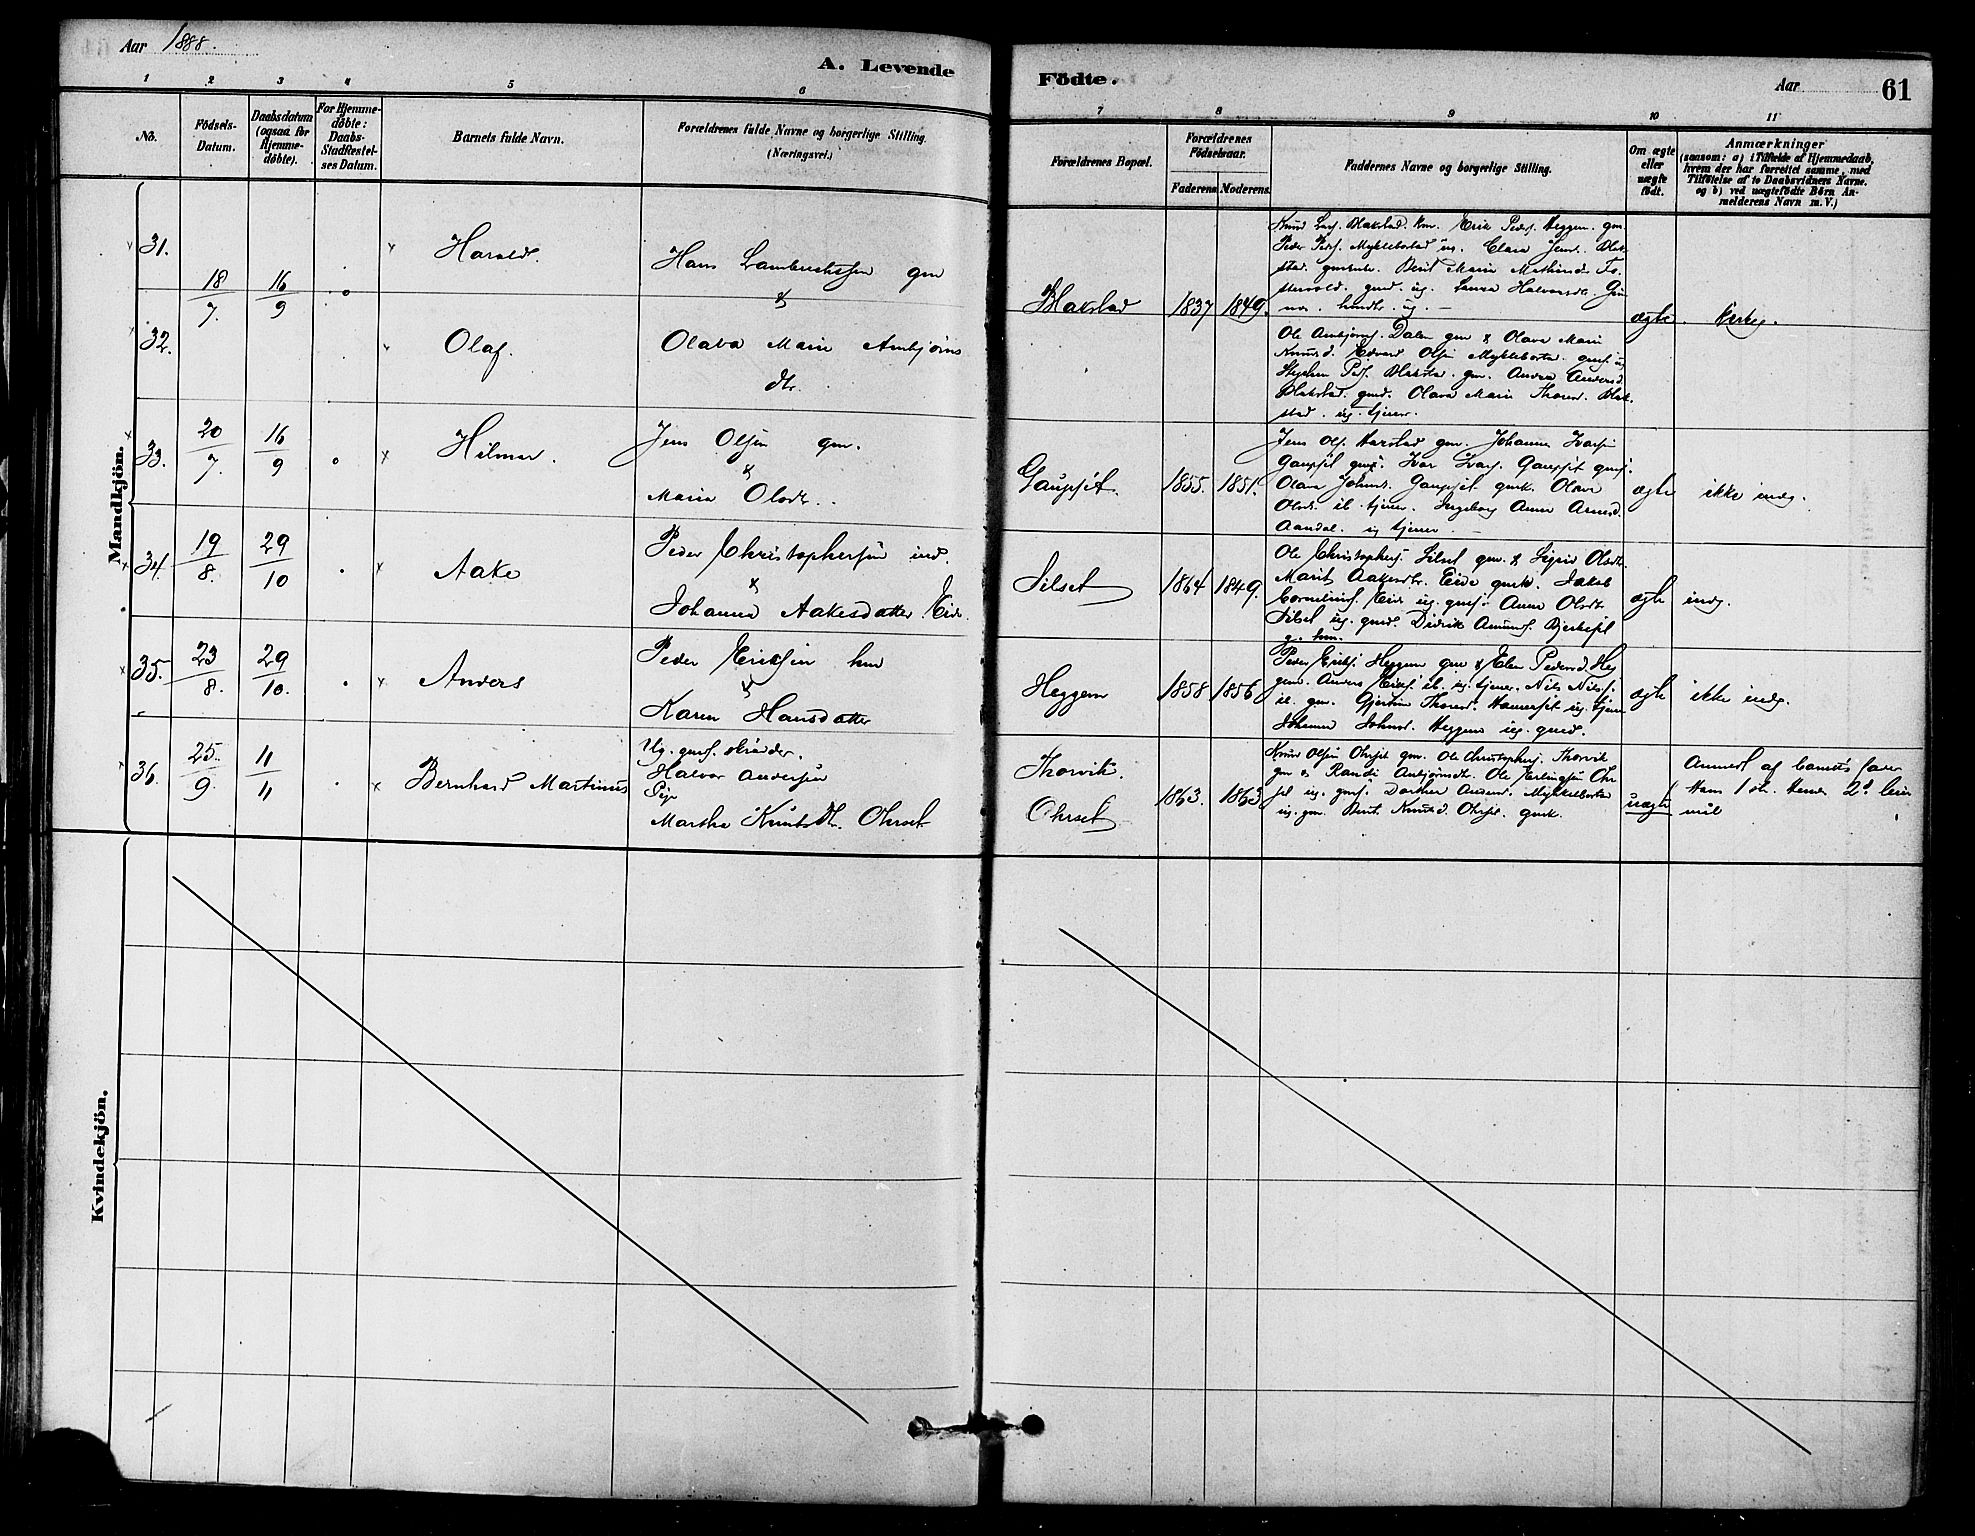 Aar 1888.
A. Levende
Födte.
Aar
61
1 2 3 4 5 6
7 8 9 10 11
No.
Födsels-
Datum.
Daabsdatum
(ogsaa for
Hjemme-
döbte).
For Hjemme-
döbte:
Daabs-
Stadfæstel-
ses Datum.
Barnets fulde Navn.
Forældrenes fulde Navne og borgerlige Stilling.
(Næringsvei.)
Forældrenes Bopæl.
Forældrenes
Födselsaar.
Faderens. Moderens.
Faddernes Navne og borgerlige Stilling.
Om ægte
eller
uægte
födt.
Anmærkninger
(saasom: a) i Tilfælde af Hjemmedaab,
hvem der har forrettet samme, med
Tilföielse af to Daabsvidners Navne.
og b) ved uægtefödte Börn An-
melderens Navn m.V.)
Mandkjön.
31.
18/7. 16/9
Harald.
Hans Lambrechtsen gm
&
32.
Olaf.
Olava Marie Anbjørns
dtr.
Blakstad 1837 1849.
Knud Lars. Blakstad. km. Erik Peders. Heggem. gm.
Peder Peds. Myklebostad ug. Clara Jensd. Blak-
stad. Berit Marie Mathisd.
Ole Anbjørns. Dalen gm & Olava Marie
Knudsd. Edvard Olsen Myklebostad. gmss. ug
Stephen Peds. Blakstad. gm. Andrea Andersd.
Blakstad. gmd. Olava Marie Thoresd. Blak-
stad. ug. tjener.
ægte.
33. 20/7 16/9
Hilmar.
Jens Olsen gm.
&
Marie Olsdt.
Gaupset. 1855. 1851.
Jens Ols. Harstad gm. Johanna Ivarsen
Gaupset Ivar Ivars. Gaupset
Olava Johnsd. Gaupset gmk. Olava
Olsdt. ib. tjener. Ingeborg Anna Arnesd.
Aandal. ug tjener
ægte ikke indg.
34. 19/8. 29/10
Aake
Peder Christophersen ind.
&
Johanna Aakesdatter Eide.
Silset 1864 1849.
Ole Christophers. Silset gm. & Sigrid Olsdt.
Marit Aakesdtr. Eide gmk. Jakob
Cornelius. Eide ug. gms. Anne Olsdt.
Silset ug. gmd. Didrik Amunds. Bjerkeset
g. hm.
ægte indg.
35. 23/8. 29/10.
Anders
Peder Eriksen hm
&
Karen Hansdatter
Heggem 1858 1856
Peder Eriks. Heggem gm & Elen Pedersd. Heg
gem. Anders Eriks. ib. ug. tjener. Nils Nils.
ib. gm. Gjertine Thoresd. Hamerset ug. tjener
Johanna Johnsd. Heggem ug. gmd.
ægte ikke indg.
36. 25./9. 11/11
Bernhard Martinus
Ug. gmss. skrædder.
Halvor Andersen
Pige
Martha Knutsdtr. Ohrset
Thorvik.
Ohrset 1863. 1863
Knud Olsen Ohrset gm. Ole Christophers. Thorvik
gm & Randi Anbjørnsdt. Ole Erlingsen Ohr-
set ug. gms. Dorthea Andersd. Myklebostad
ug. gm. Berit Knudsd. Ohrset. gmk.
uægte
Anmeldt af barnets fader
Hans 1ste. Hendes 2det leier
mål
Kvindekjön.